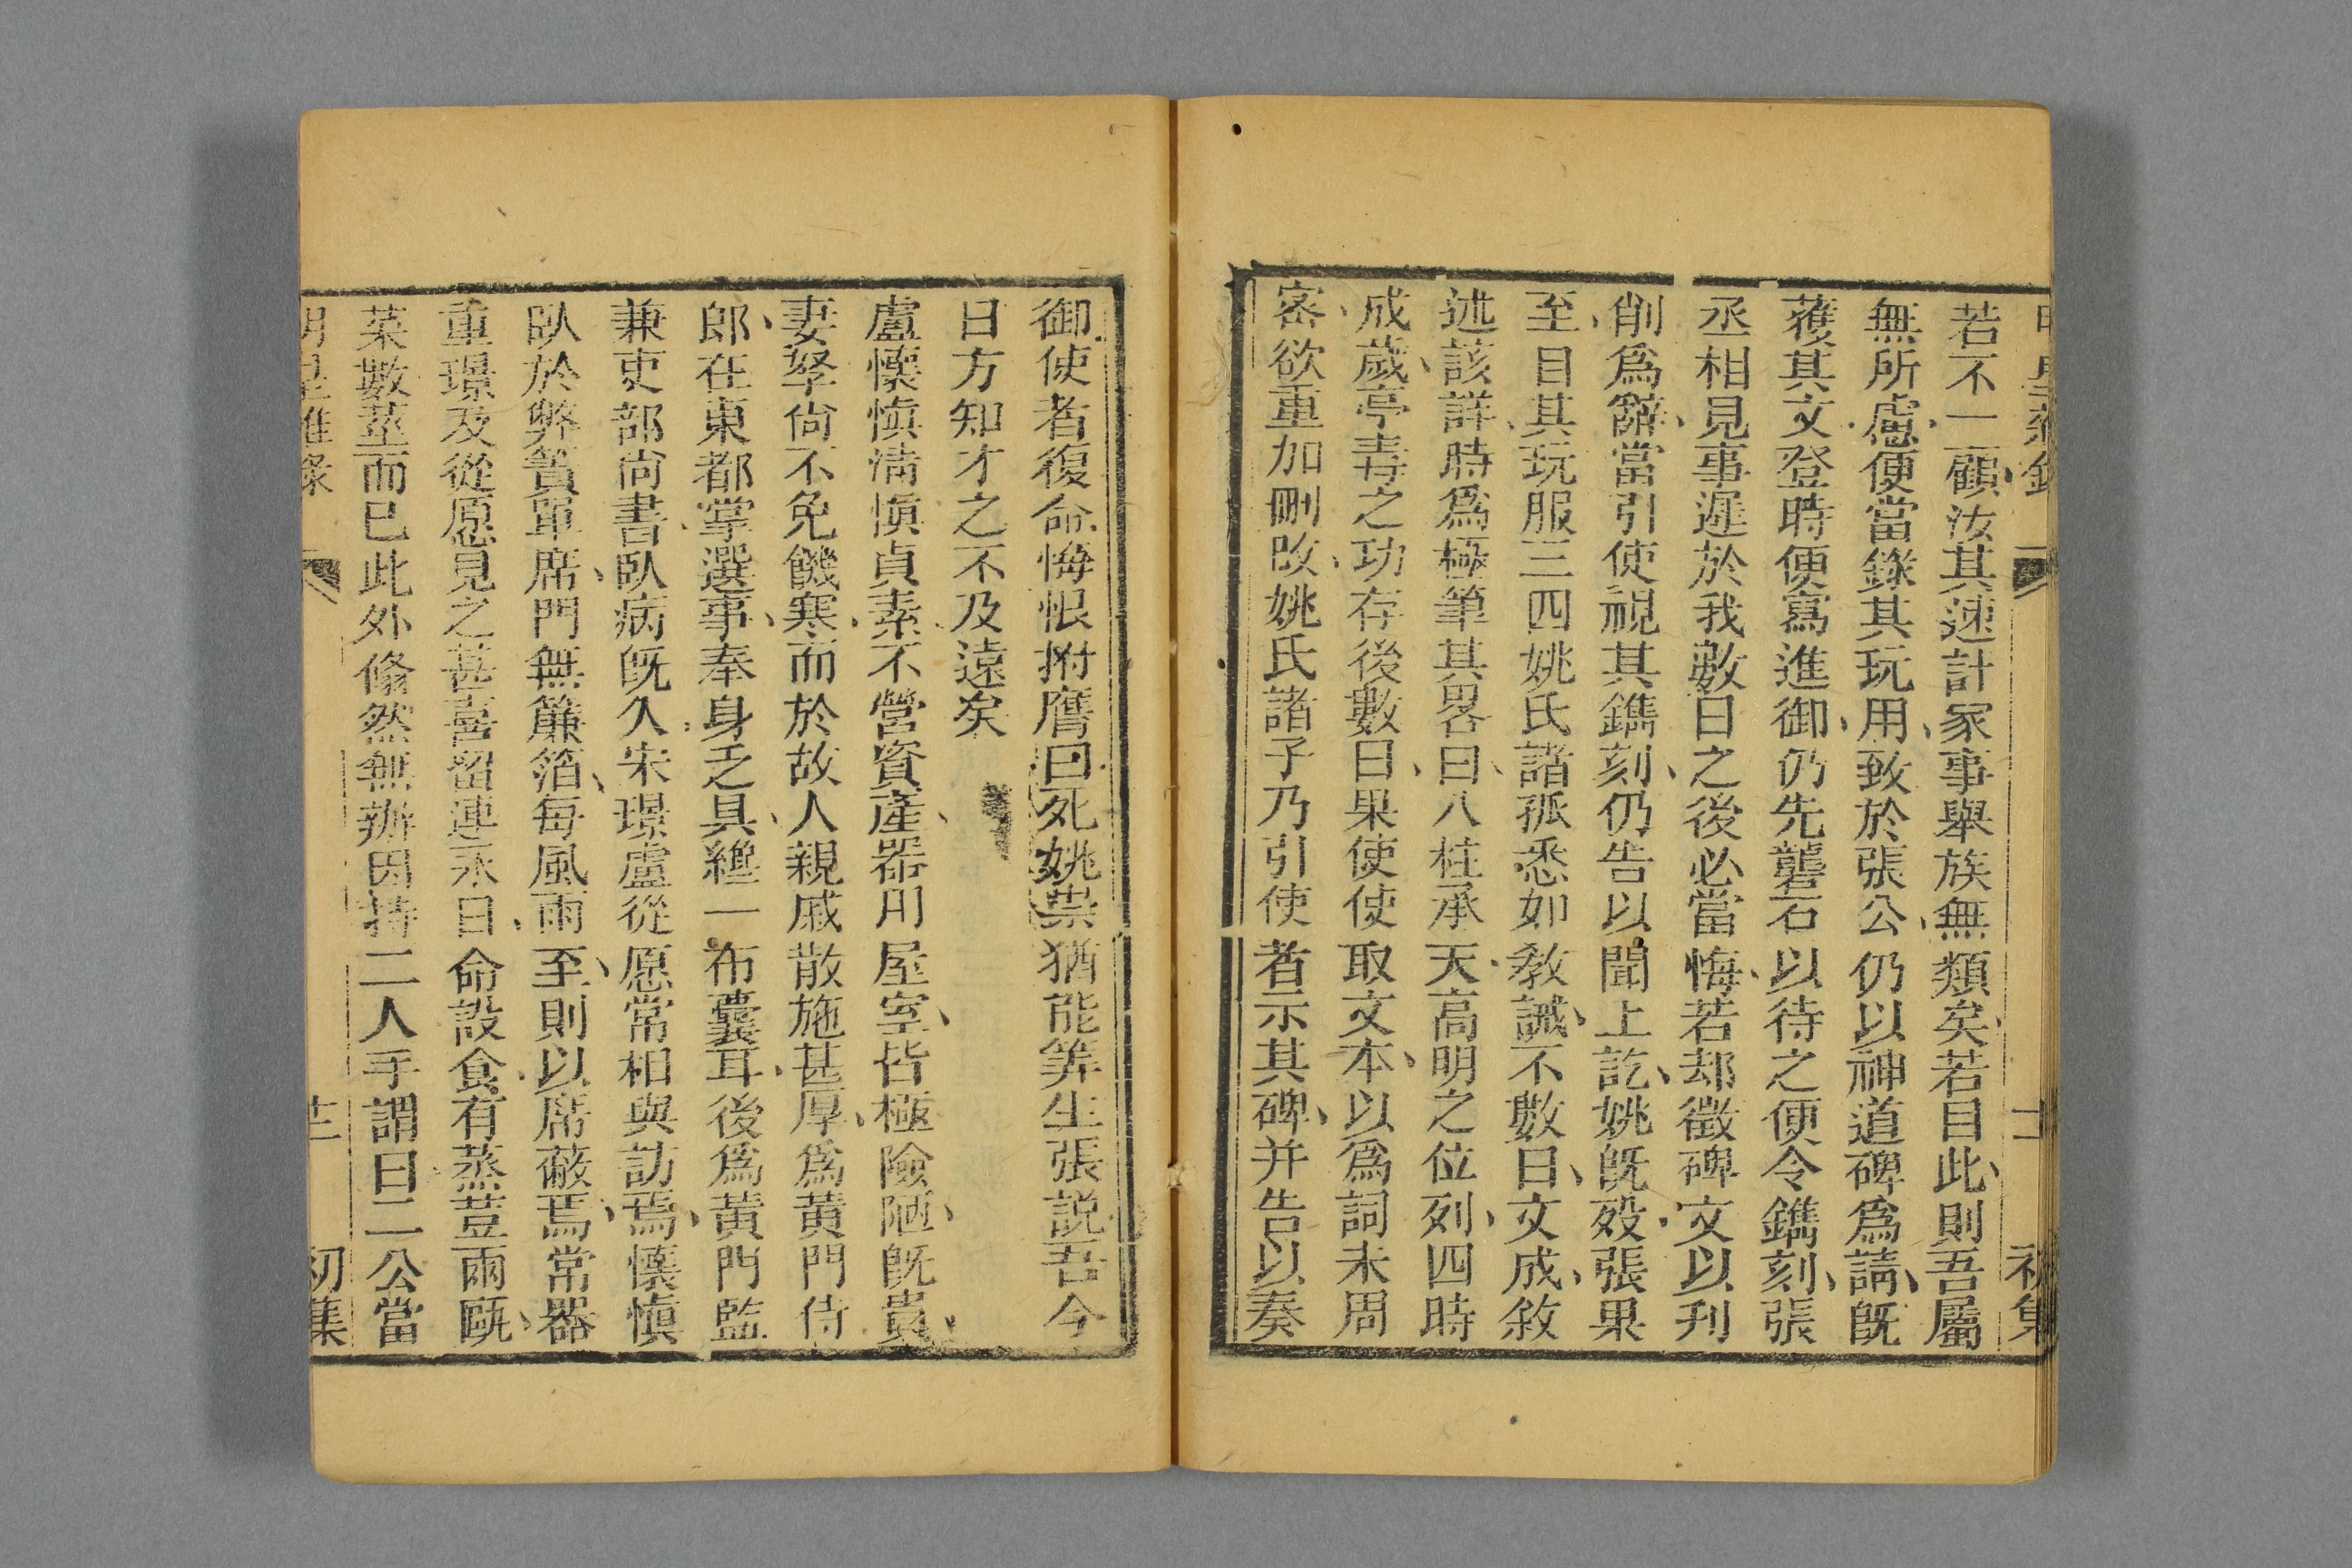 若不一顧汝其速計家事舉族無類矣若目此則吾屬
無所慮便當錄其玩用致於張公仍以神道碑爲請旣
蒦其文登時便寫進御仍先礱石以待之便令鐫刻張
丞相見事遲於我數日之後必當悔若却徵碑文以刋
削爲辭當引使視其鐫刻仍告以聞上訖姚旣歿張果
至目其玩服三四姚氏諸孤悉如敎誡不數日文成敘
述該詳時爲極筆其畧曰八柱承天高明之位列四時
成歲亭毒之功存後數日果使使取文本以爲詞未周
密欲重加刪改姚氏諸子乃引使者示其碑并告以奏
御使者復命悔恨拊膺曰死姚崇猶能筭生張説吾今
日方知才之不及遠矣
盧懷愼淸愼貞素不營資產器用屋室皆極險陋旣貴
妻孥尙不免饑寒而於故人親戚散施甚厚爲黃門侍
郎在東都掌選事奉身之具纔一布囊耳後爲黃門監
兼吏部尙書臥病旣久宋璟盧從愿常相與訪焉懷愼
臥於弊簀單席門無簾箔每風雨至則以席蔽焉常器
重璟及從愿見之甚喜留連永日命設食有蒸荳兩甌
菜數莖而已此外翛然無辦因持二人手謂曰二公當
明皇雜錄 十二 初集